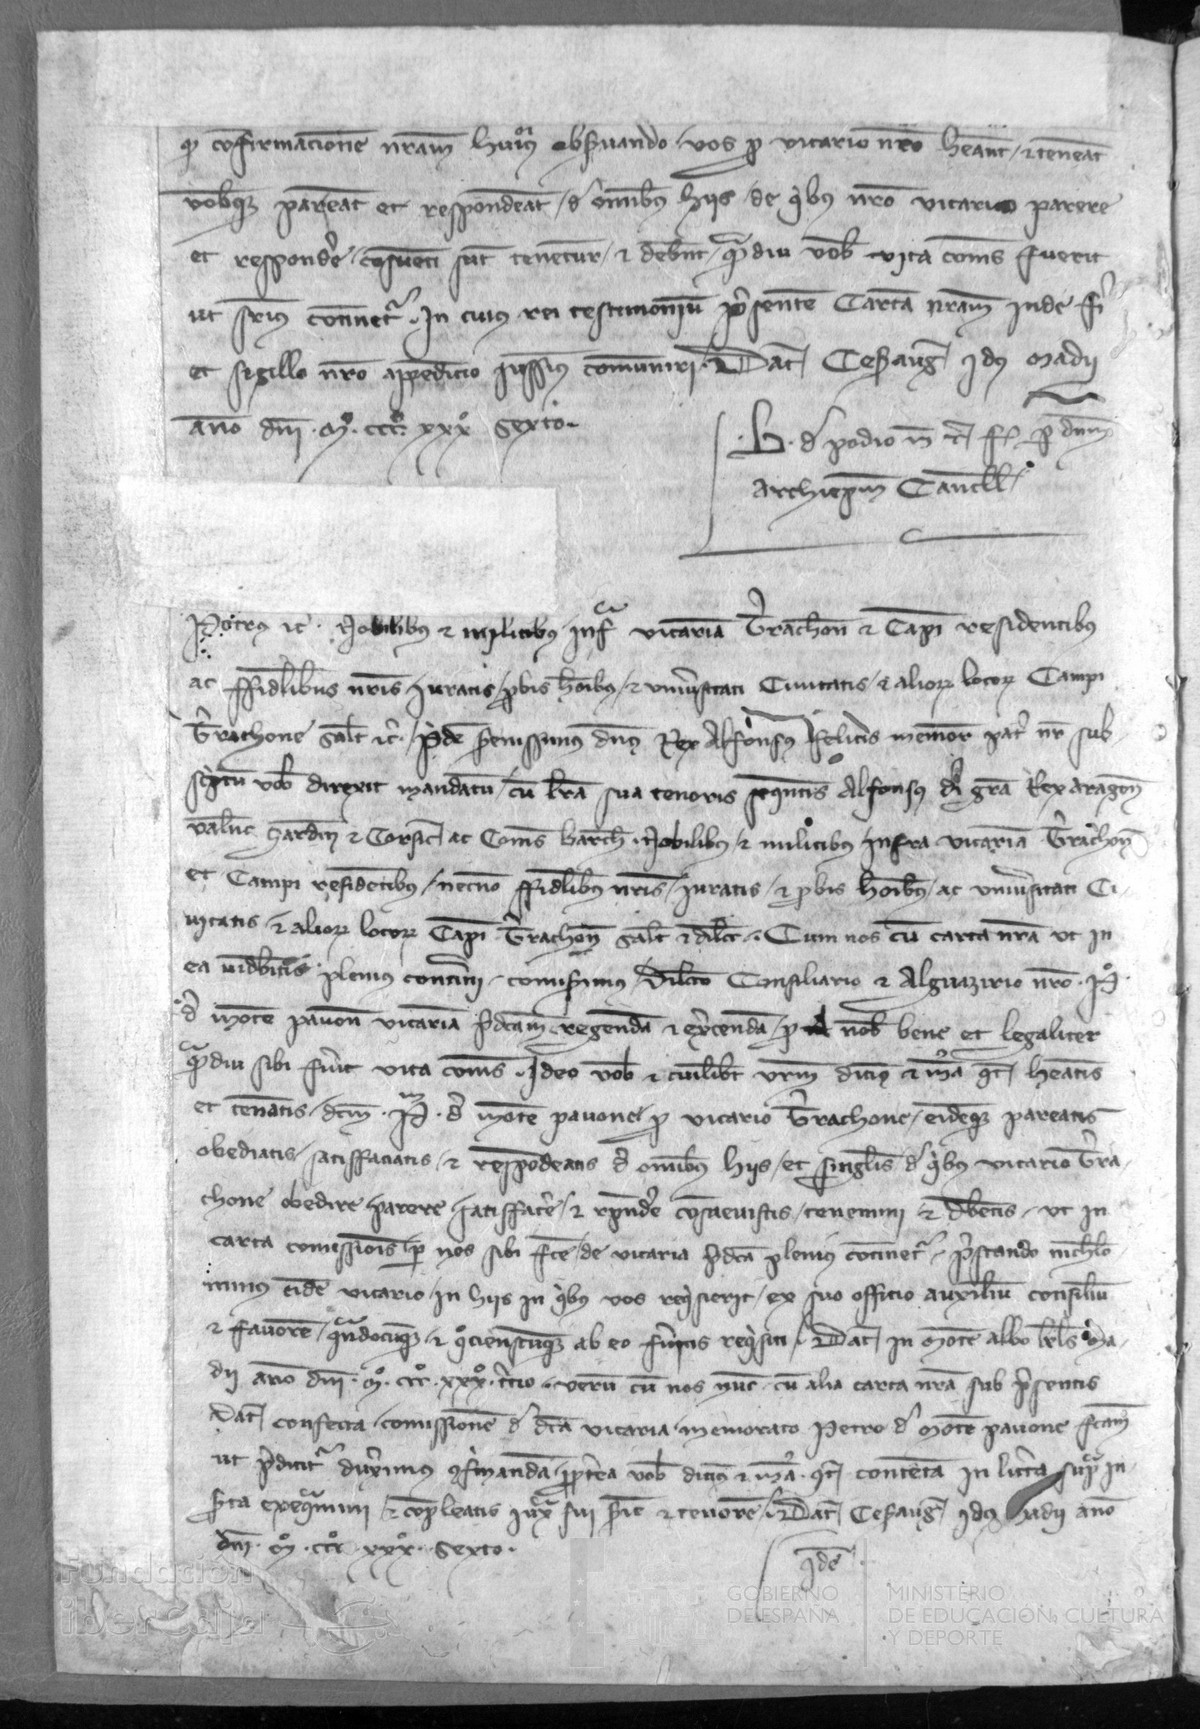 confirmacione nram huiusmodi observando vos p vicario nro heant et teneat
vobisque pareat et respondeat de omibus hiis de qibus nro vicario parere
et respondere consueti sut tenetur et debent qamdiu vob vita comes fuerit
ut supius continetur. In cuius rei testimonium psentem Carta nram inde fi
et sigillo nro appendicio iussim comuniri. Dat Cesaug Idus Madii
anno dni Mº. CCCº. xxxº sexto.
B. de podio m. p dnm
archiepm Cancell
Petrus etc. Nobilibus et militibus infra vicaria Terrachon et Campi residentibus
ac fidelibus nris Iuratis pbis hoibus et universitati Civitatis et alior locor Campi
Terrachone salt etc. Pridem serenissimus dns Rex Alfonsus felicis memor pater nr sub
sciptu vob direxit mandatu cu lra sua tenoris sequentis Alfonsus dei gra Rex Aragon
Valenc Sardin et Corsic ac Comes Barch. Nobilibus et militibus infra vicaria Terrachon
et Campi residetibus necno fidelibus nris Iuratis et pbis hoibus ac universitati Ci
vitatis et alior locor Capi Terrachon salt et dilec. Cum nos cu carta nra ut in
ea videbitis plenius contineri comisimus dilecto Consiliario et Alguazirio nro. P.
de Mote pavon vicaria pdcam regenda et exercenda p nob bene et legaliter
qamdiu sibi fuerit vita comes. Ideo vob et cuilibet vrm dicim et heatis
et teneatis dcm. P. de Mote pavone p vicario Terrachone eidemque pareatis
obediatis satisfaciatis et respondeatis de omibus hiis et singulis de qibus vicario Terra
chone obedire parere satisfacere et rpndere consuevistis tenemini et debetis ut in
carta comissionis p nos sibi fce de vicaria pdca plenius continetur pstando nichilo
minus eide vicario in hiis in qibus vos reqsierit ex suo officio auxiliu consiliu
et favore qandocuque et qocienscuque ab eo fueritis reqsiti. Dat in Mote albo kls Ma
dii anno dni. Mº. CCCº. xxxº. tercio. Veru cu nos nuc cu alia carta nra sub psentis
dat confecta comissione de dca vicaria memorato Petro de Mote pavone fcam
ut pdicitur duximus confirmanda ppterea vob dicimus et contenta in littera supra in
serta exequamini et copleatis iuxta sui serie et tenore. Dat Cesaug Idus Madii anno
dni. Mº. CCCº. xxxº. sexto.
Idem
Fundación
ibercaja
GOBIERNO
DE ESPAÑA
MINISTERIO
DE EDUCACIÓN, CULTURA
Y DEPORTE